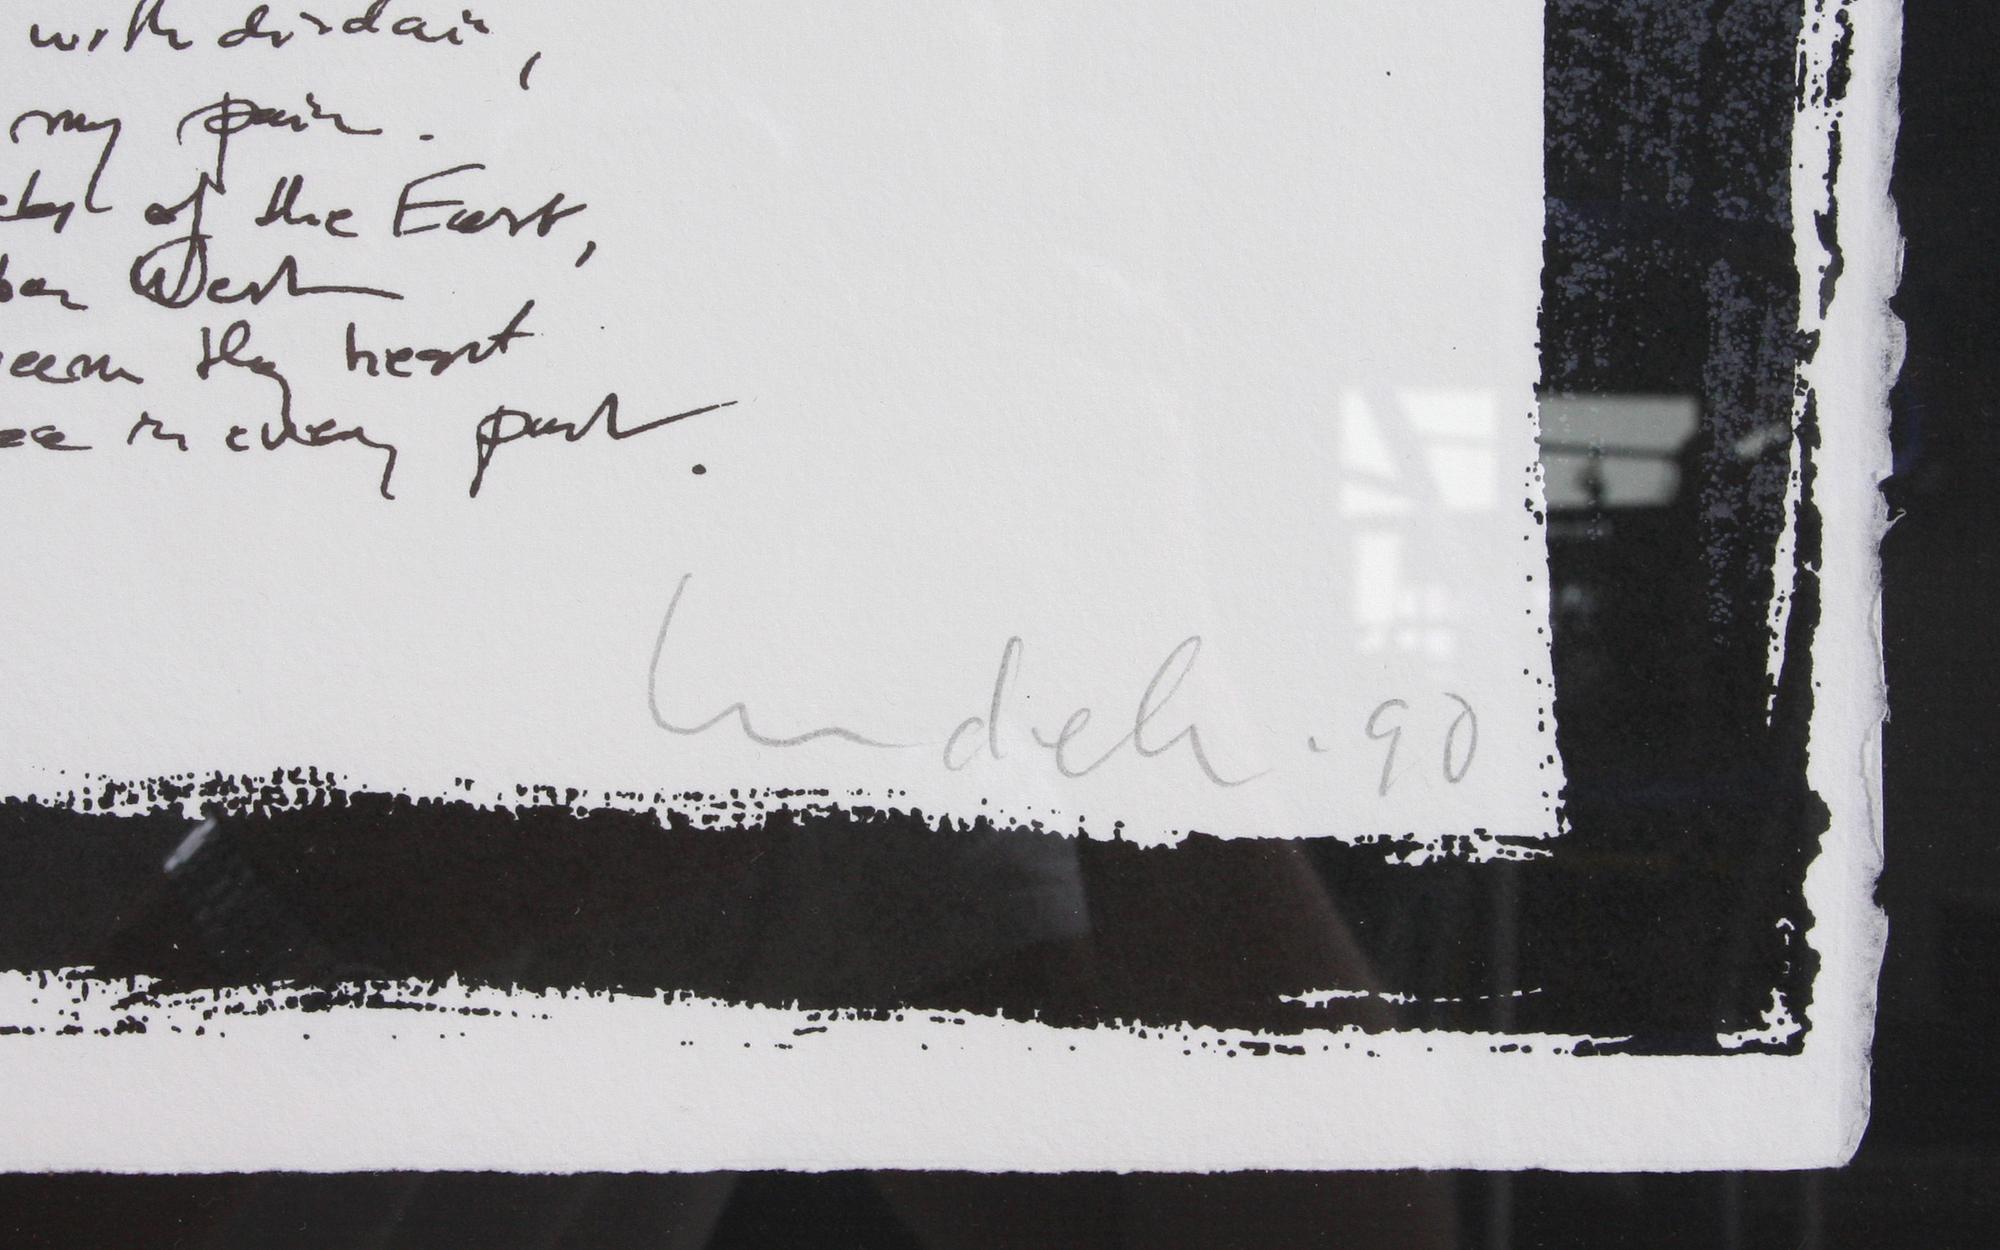 with disdain,
my pain.
of the East,
West
thy heart
in every part.
90